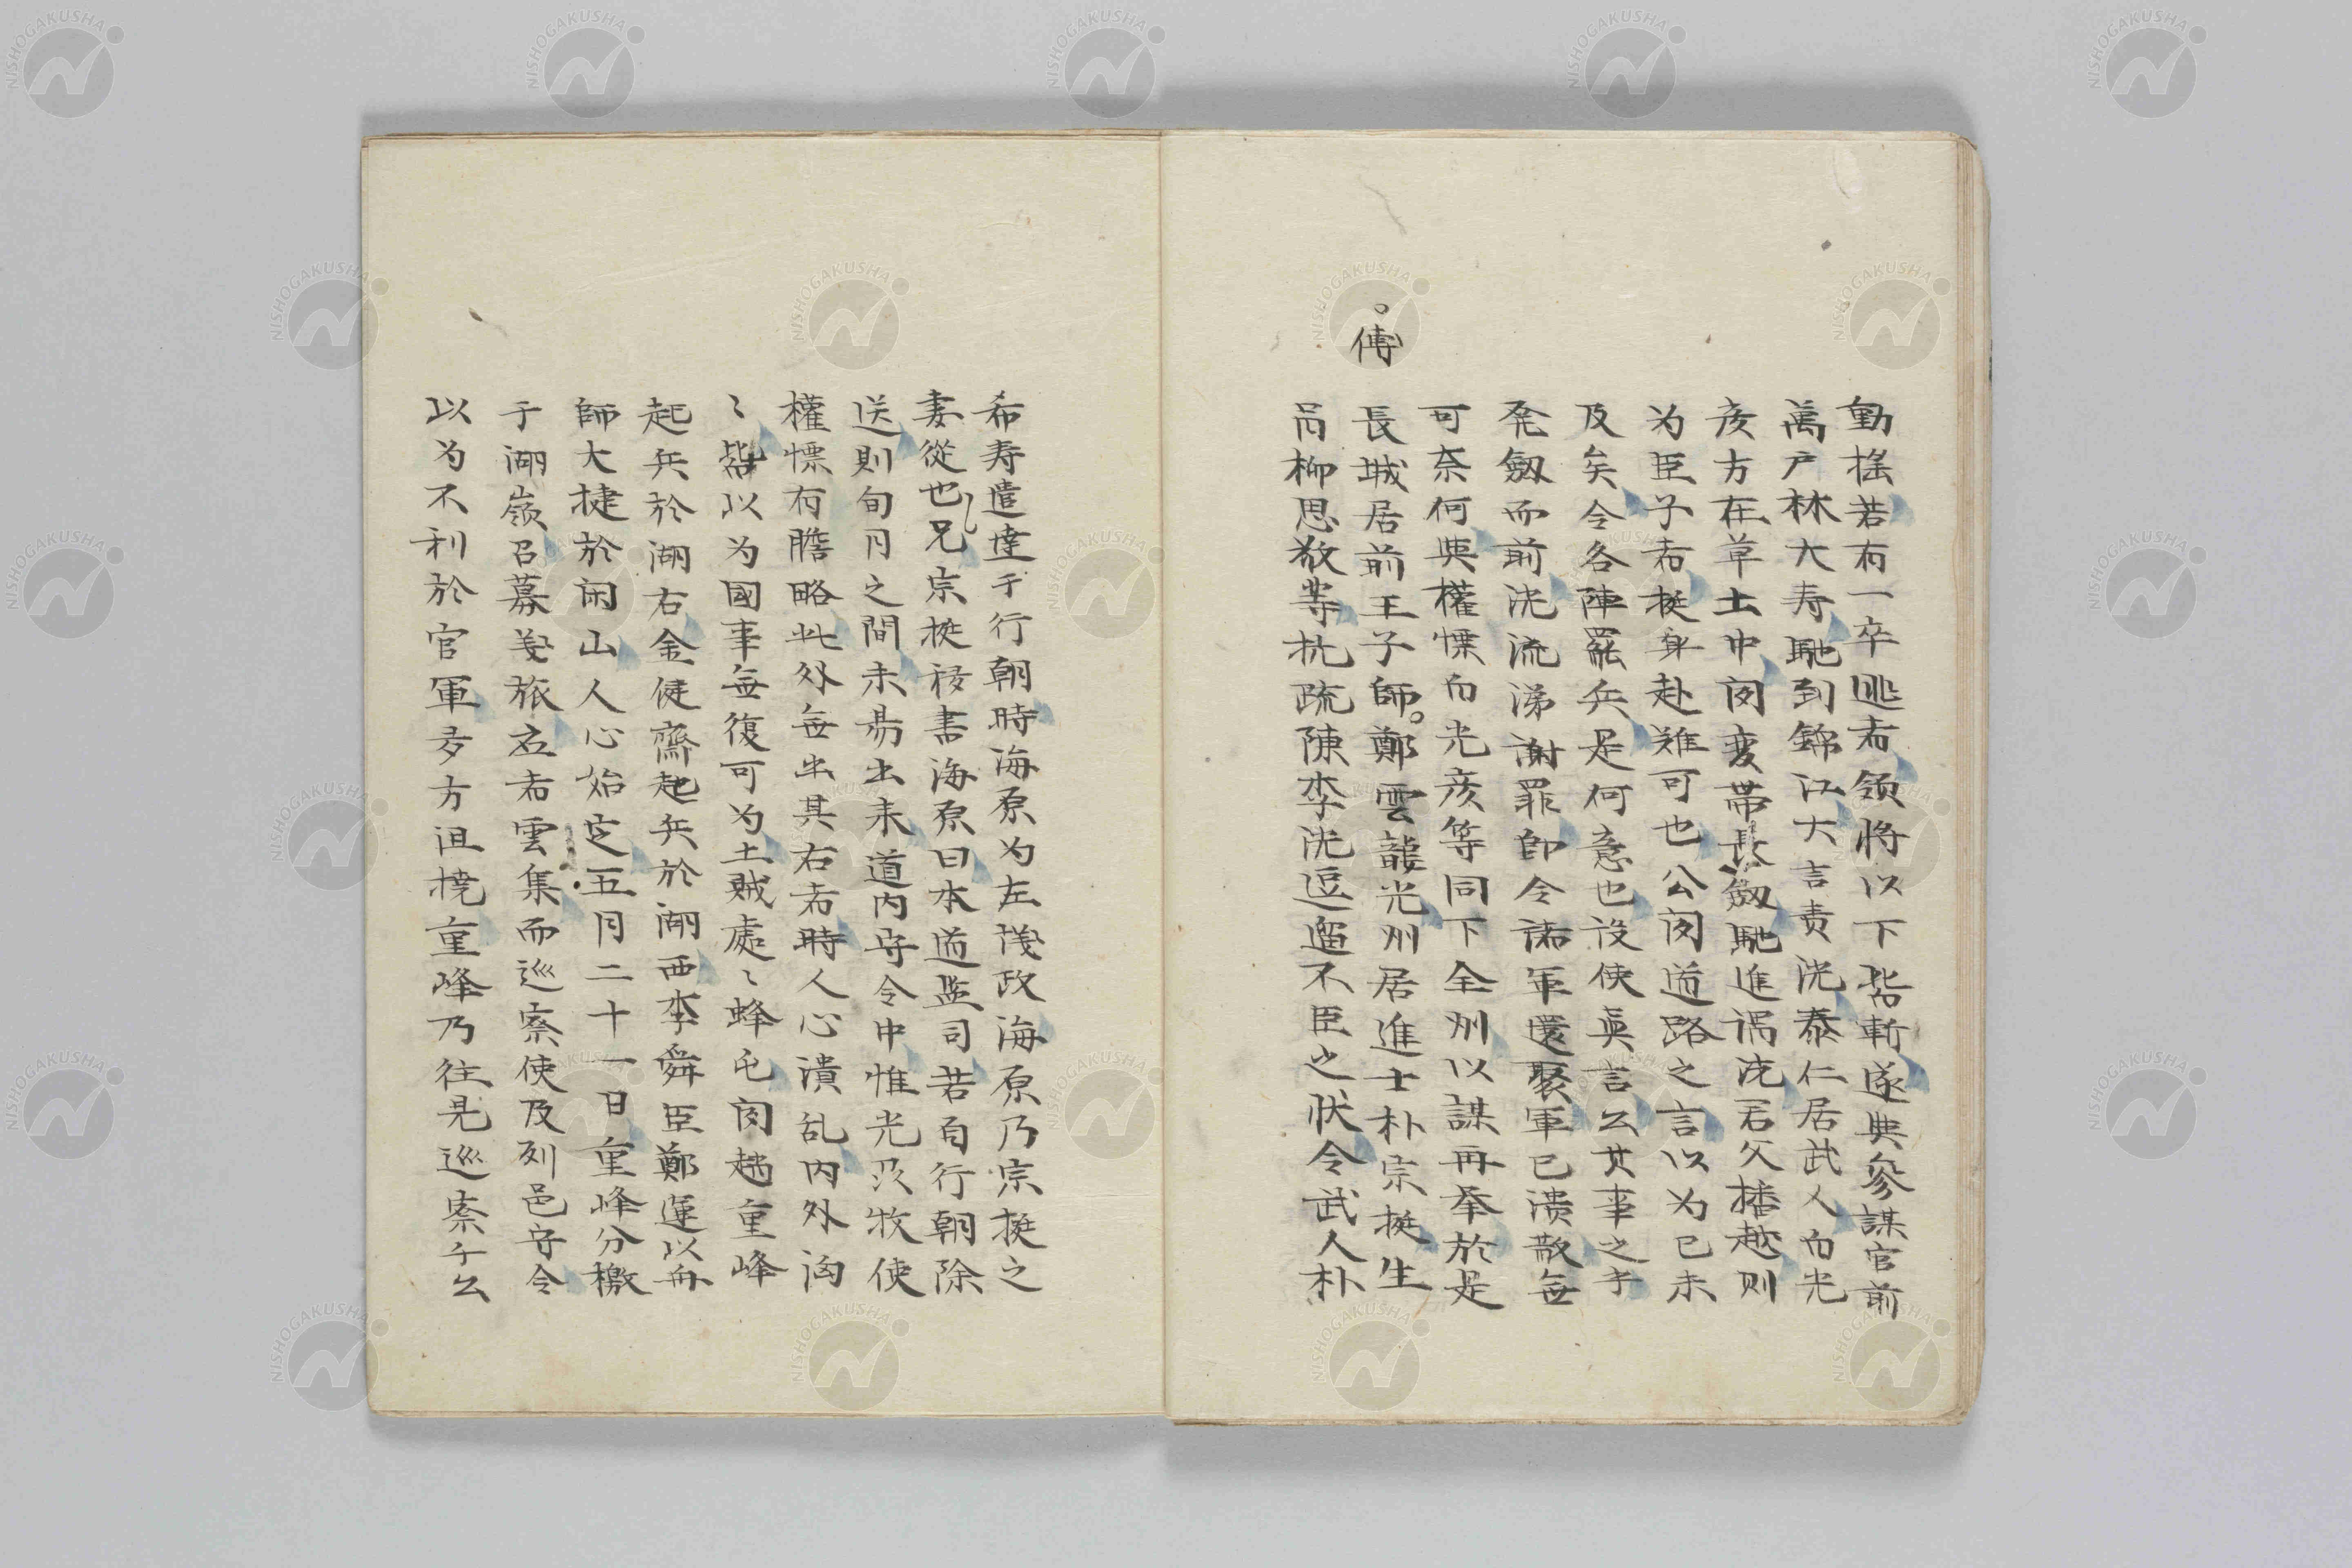 動搖若有一卒逃者領将以下皆斬遂與參謀官前
萬戶林大寿馳到錦江大言责洸泰仁居武人白光
彦方在草土中闵变带長劔馳進謂洸君父播越则
为臣子者挺身赴难可也公闵道路之言以为已未
及矣令各陣罷兵是何意也设使真言公其事之乎
発劔而前洸流涕謝罪即令諸軍還聚軍已潰散無
可奈何與權慄白光彦等同下全州以謀再举於是
長城居前王子師。鄭雲龍光州居進士朴宗挺生
。傅
吊柳思敬等抗疏陳李洸逗遛不臣之状令武人朴
希寿遣達于行朝時海原为左議政海原乃宗挺之
妻從也兄宗挺移書海原曰本道监司若自行朝除
送則旬月之間未易出来道内守令中惟光州牧使
權慄有膽略此外無出其右者時人心潰乱内外洶
〻皆以为國事無復可为土賊處〻蜂屯闵趙重峰
起兵於湖右金健齋起兵於湖西李舜臣鄭運以舟
師大捷於闲山人心始定五月二十一日重峰分檄
于湖嶺召募義旅应者雲集而巡察使及列邑守令
以为不利於官軍多方沮撓重峰乃往見巡察乎公